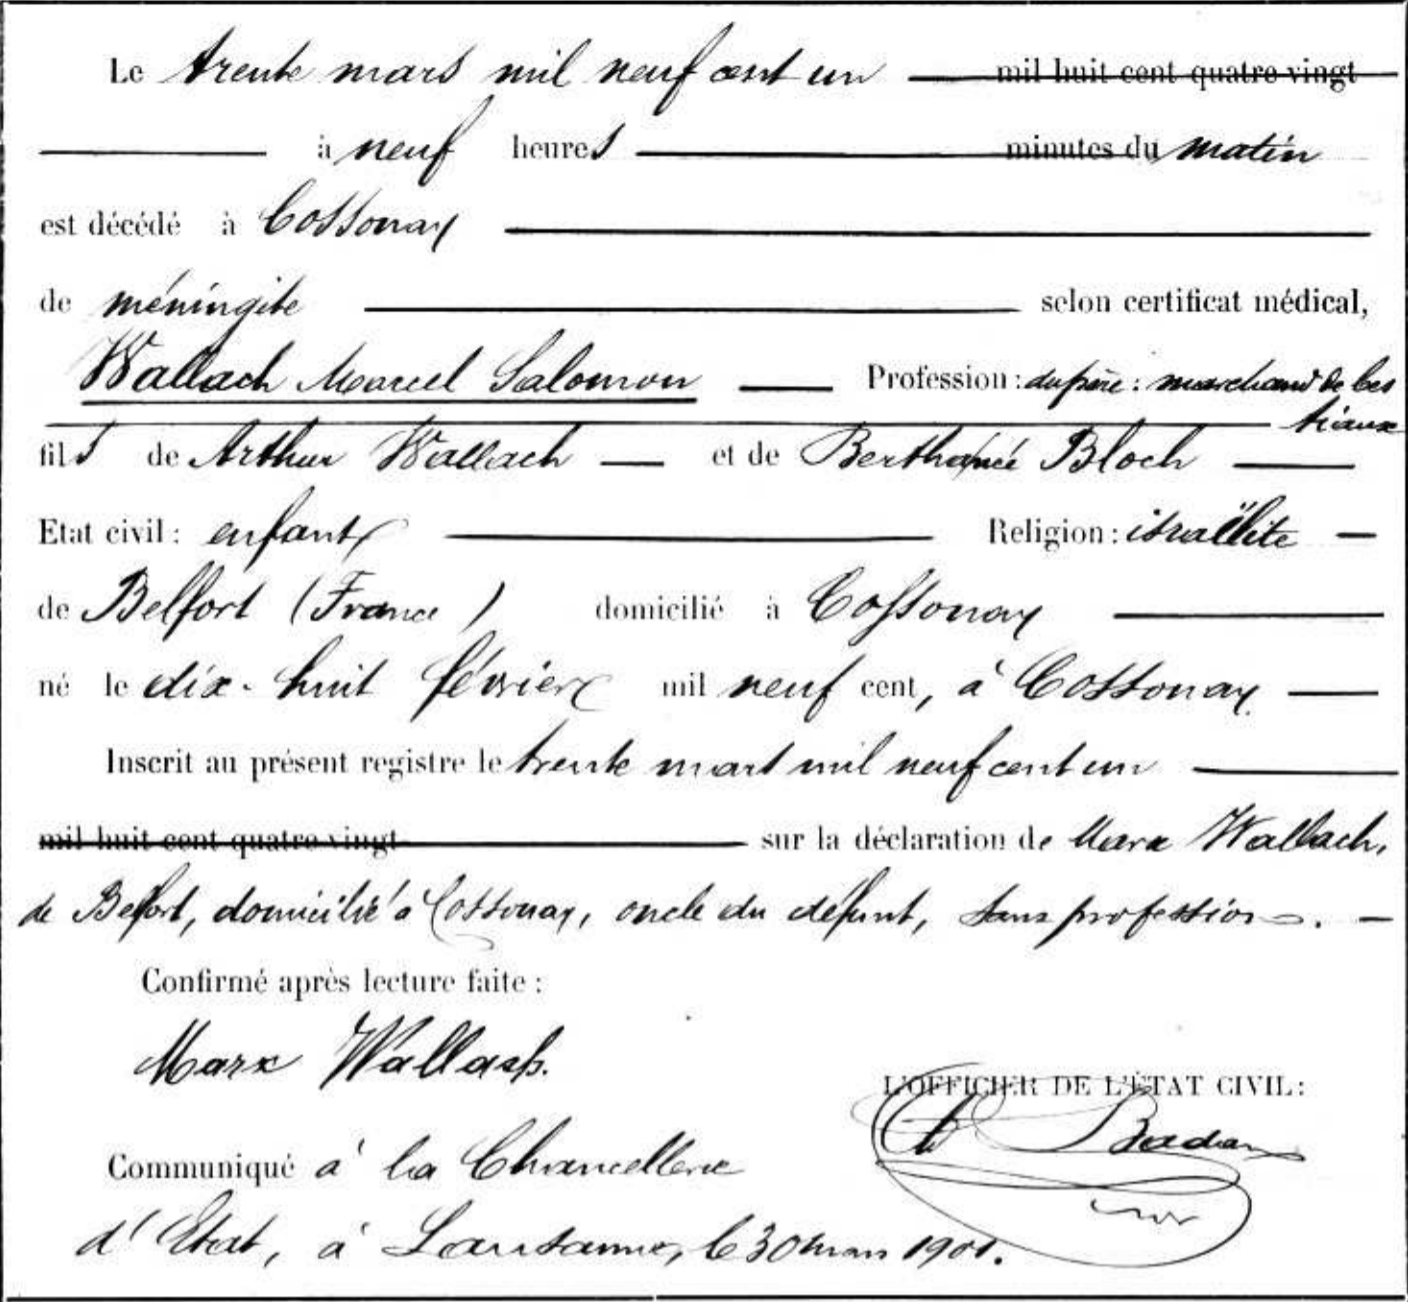 Le trente mars mil neuf cent un mil huit cent quatre vingt
à neuf heures minutes du matin
est décédé à Cossonay
de méningite selon certificat médical,
Wallach Marcel Salomon Profession : du père : marchand de bes
tiaux
fils de Arthur Wallach et de Berthe née Bloch
Etat civil : enfant Religion : israëlite
de Belfort (France) domicilié à Cossonay
né le dix-huit février mil neuf cent, à Cossonay
Inscrit au présent registre le trente mars mil neuf cent un
mil huit cent quatre vingt sur la déclaration de Marx Wallach,
de Belfort, domicilié à Cossonay, oncle du défunt, sans profession.
Confirmé après lecture faite :
Marx Wallach.
L'OFFICIER DE L'ÉTAT CIVIL :
Communiqué à la Chancellerie
d'Etat, à Lausanne, le 30 mars 1901.